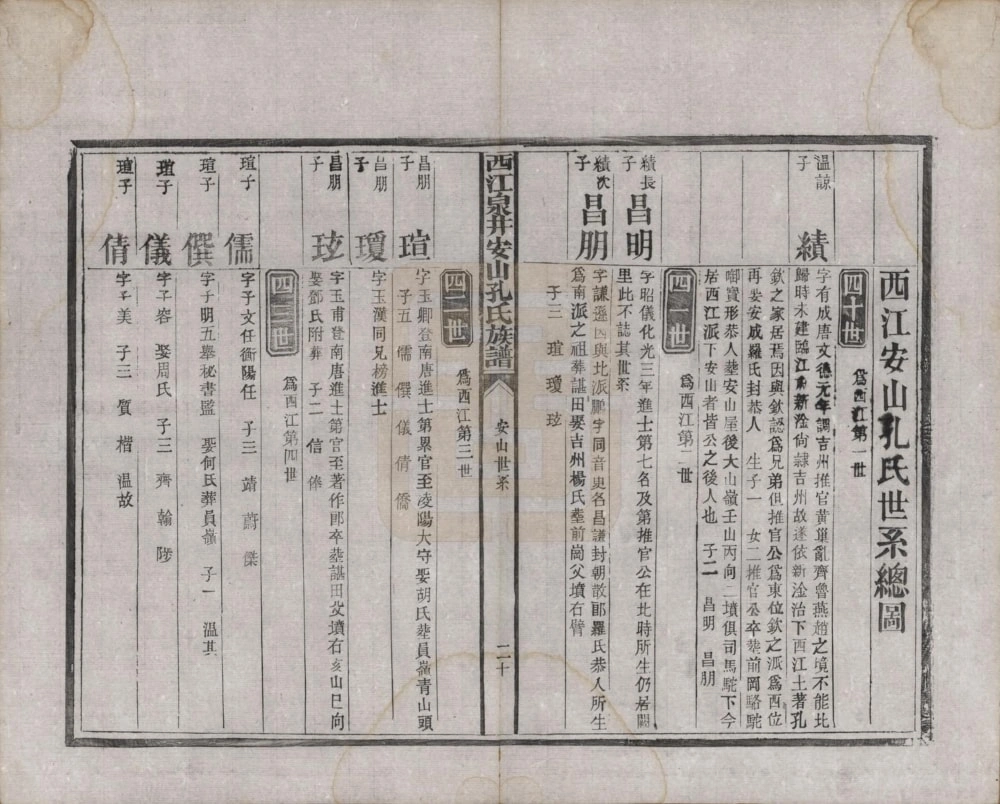 西江安山孔氏世系總圖
四十世
為西江第一世
溫諒子
績
字有成唐文德元年調吉州推官黃巢亂齊魯燕趙之境不能北
歸時未建臨江而新淦尚隸吉州故遂依新淦治下西江土著孔
欽之家居焉因與欽認為兄弟但推官公為東位欽之派為西位
再娶安成羅氏封恭人 生子一 女二推官公卒塟前岡略駝
啣寶形恭人塟安山屋後大山嶺壬山丙向二墳俱司馬駝下今
居西江派下安山者皆公之後人也 子二 昌明 昌朋
四一世
為西江第二世
績長子
昌明
字昭儀化光三年進士第七名及第推官公在北時所生仍居闕
里此不誌其世系
績次子
昌朋
字謙遜因與北派鵬字同音更名昌謙封朝散郎羅氏恭人所生
為南派之祖葬諶田娶吉州楊氏塟前崗父墳右臂
子三 瑄 瓊 玹
西江泉井安山孔氏族譜
安山世系
二十
四二世
為西江第三世
昌朋子
瑄
字玉卿登南唐進士第累官至凌陽大守娶胡氏塟員嶺青山頭
子五 儒 僎 儀 倩 僑
昌朋子
瓊
字玉漢同兄榜進士
昌朋子
玹
字玉甫登南唐進士第官至著作郎卒塟諶田父墳右亥山巳向
娶鄧氏附葬 子二 信 俸
四三世
為西江第四世
瑄子
儒
字子文任衡陽任 子三 靖 蔚 傑
瑄子
僎
字子明五舉秘書監 娶何氏葬員嶺 子一 溫其
瑄子
儀
字子容 娶周氏 子三 齊 翰 隲
瑄子
倩
字子美 子三 質 楷 溫故